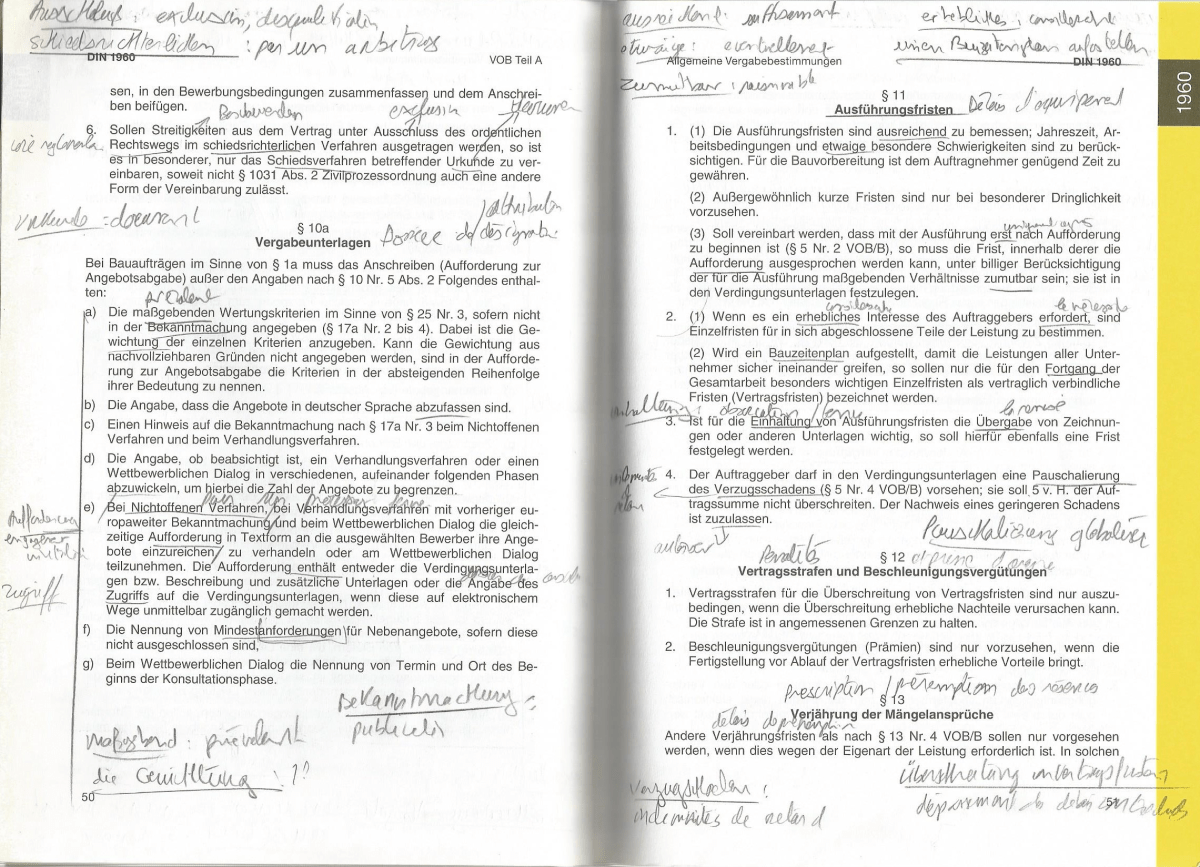 Ausschluß : exclusion, disqualification
schiedsrichterlichen : par un arbitres
DIN 1960
VOB Teil A
sen, in den Bewerbungsbedingungen zusammenfassen und dem Anschrei-
ben beifügen.
exclusion
6. Sollen Streitigkeiten aus dem Vertrag unter Ausschluss des ordentlichen
Rechtswegs im schiedsrichterlichen Verfahren ausgetragen werden, so ist
es in besonderer, nur das Schiedsverfahren betreffender Urkunde zu ver-
einbaren, soweit nicht § 1031 Abs. 2 Zivilprozessordnung auch eine andere
Form der Vereinbarung zulässt.
Urkunde = document
§ 10a
Vergabeunterlagen
Bei Bauaufträgen im Sinne von § 1a muss das Anschreiben (Aufforderung zur
Angebotsabgabe) außer den Angaben nach § 10 Nr. 5 Abs. 2 Folgendes enthal-
ten:
a) Die maßgebenden Wertungskriterien im Sinne von § 25 Nr. 3, sofern nicht
in der Bekanntmachung angegeben (§ 17a Nr. 2 bis 4). Dabei ist die Ge-
wichtung der einzelnen Kriterien anzugeben. Kann die Gewichtung aus
nachvollziehbaren Gründen nicht angegeben werden, sind in der Aufforde-
rung zur Angebotsabgabe die Kriterien in der absteigenden Reihenfolge
ihrer Bedeutung zu nennen.
b) Die Angabe, dass die Angebote in deutscher Sprache abzufassen sind.
c) Einen Hinweis auf die Bekanntmachung nach § 17a Nr. 3 beim Nichtoffenen
Verfahren und beim Verhandlungsverfahren.
d) Die Angabe, ob beabsichtigt ist, ein Verhandlungsverfahren oder einen
Wettbewerblichen Dialog in verschiedenen, aufeinander folgenden Phasen
abzuwickeln, um hierbei die Zahl der Angebote zu begrenzen.
e) Bei Nichtoffenen Verfahren, bei Verhandlungsverfahren mit vorheriger eu-
ropaweiter Bekanntmachung und beim Wettbewerblichen Dialog die gleich-
zeitige Aufforderung in Textform an die ausgewählten Bewerber ihre Ange-
bote einzureichen, zu verhandeln oder am Wettbewerblichen Dialog
teilzunehmen. Die Aufforderung enthält entweder die Verdingungsunterla-
gen bzw. Beschreibung und zusätzliche Unterlagen oder die Angabe des
Zugriffs auf die Verdingungsunterlagen, wenn diese auf elektronischem
Wege unmittelbar zugänglich gemacht werden.
zugriff
f) Die Nennung von Mindestanforderungen für Nebenangebote, sofern diese
nicht ausgeschlossen sind,
g) Beim Wettbewerblichen Dialog die Nennung von Termin und Ort des Be-
ginns der Konsultationsphase.
Bekanntmachung :
publication
maßgebend : prévalent
die Gewichtung : !?
50
ausreichend : suffisamment
erhebliches : considérable
etwaige : éventuellement
einen Bauzeitenplan aufstellen
Allgemeine Vergabebestimmungen
DIN 1960
zumutbar : raisonnable
1960
§ 11
Ausführungsfristen
1. (1) Die Ausführungsfristen sind ausreichend zu bemessen; Jahreszeit, Ar-
beitsbedingungen und etwaige besondere Schwierigkeiten sind zu berück-
sichtigen. Für die Bauvorbereitung ist dem Auftragnehmer genügend Zeit zu
gewähren.
(2) Außergewöhnlich kurze Fristen sind nur bei besonderer Dringlichkeit
vorzusehen.
(3) Soll vereinbart werden, dass mit der Ausführung erst nach Aufforderung
zu beginnen ist (§ 5 Nr. 2 VOB/B), so muss die Frist, innerhalb derer die
Aufforderung ausgesprochen werden kann, unter billiger Berücksichtigung
der für die Ausführung maßgebenden Verhältnisse zumutbar sein; sie ist in
den Verdingungsunterlagen festzulegen.
2. (1) Wenn es ein erhebliches Interesse des Auftraggebers erfordert, sind
Einzelfristen für in sich abgeschlossene Teile der Leistung zu bestimmen.
(2) Wird ein Bauzeitenplan aufgestellt, damit die Leistungen aller Unter-
nehmer sicher ineinander greifen, so sollen nur die für den Fortgang der
Gesamtarbeit besonders wichtigen Einzelfristen als vertraglich verbindliche
Fristen (Vertragsfristen) bezeichnet werden.
la remise
3. Ist für die Einhaltung von Ausführungsfristen die Übergabe von Zeichnun-
gen oder anderen Unterlagen wichtig, so soll hierfür ebenfalls eine Frist
festgelegt werden.
4. Der Auftraggeber darf in den Verdingungsunterlagen eine Pauschalierung
des Verzugsschadens (§ 5 Nr. 4 VOB/B) vorsehen; sie soll 5 v. H. der Auf-
tragssumme nicht überschreiten. Der Nachweis eines geringeren Schadens
ist zuzulassen.
Pauschalierung globaliser
Pénalités
§ 12
Vertragsstrafen und Beschleunigungsvergütungen
1. Vertragsstrafen für die Überschreitung von Vertragsfristen sind nur auszu-
bedingen, wenn die Überschreitung erhebliche Nachteile verursachen kann.
Die Strafe ist in angemessenen Grenzen zu halten.
2. Beschleunigungsvergütungen (Prämien) sind nur vorzusehen, wenn die
Fertigstellung vor Ablauf der Vertragsfristen erhebliche Vorteile bringt.
prescription / péremption des réserves
§ 13
Verjährung der Mängelansprüche
délais de péremption
Andere Verjährungsfristen als nach § 13 Nr. 4 VOB/B sollen nur vorgesehen
werden, wenn dies wegen der Eigenart der Leistung erforderlich ist. In solchen
Überschreitung von Vertragsfristen
dépassement des délais contractuels
Verzugsschaden :
indemnités de retard
51